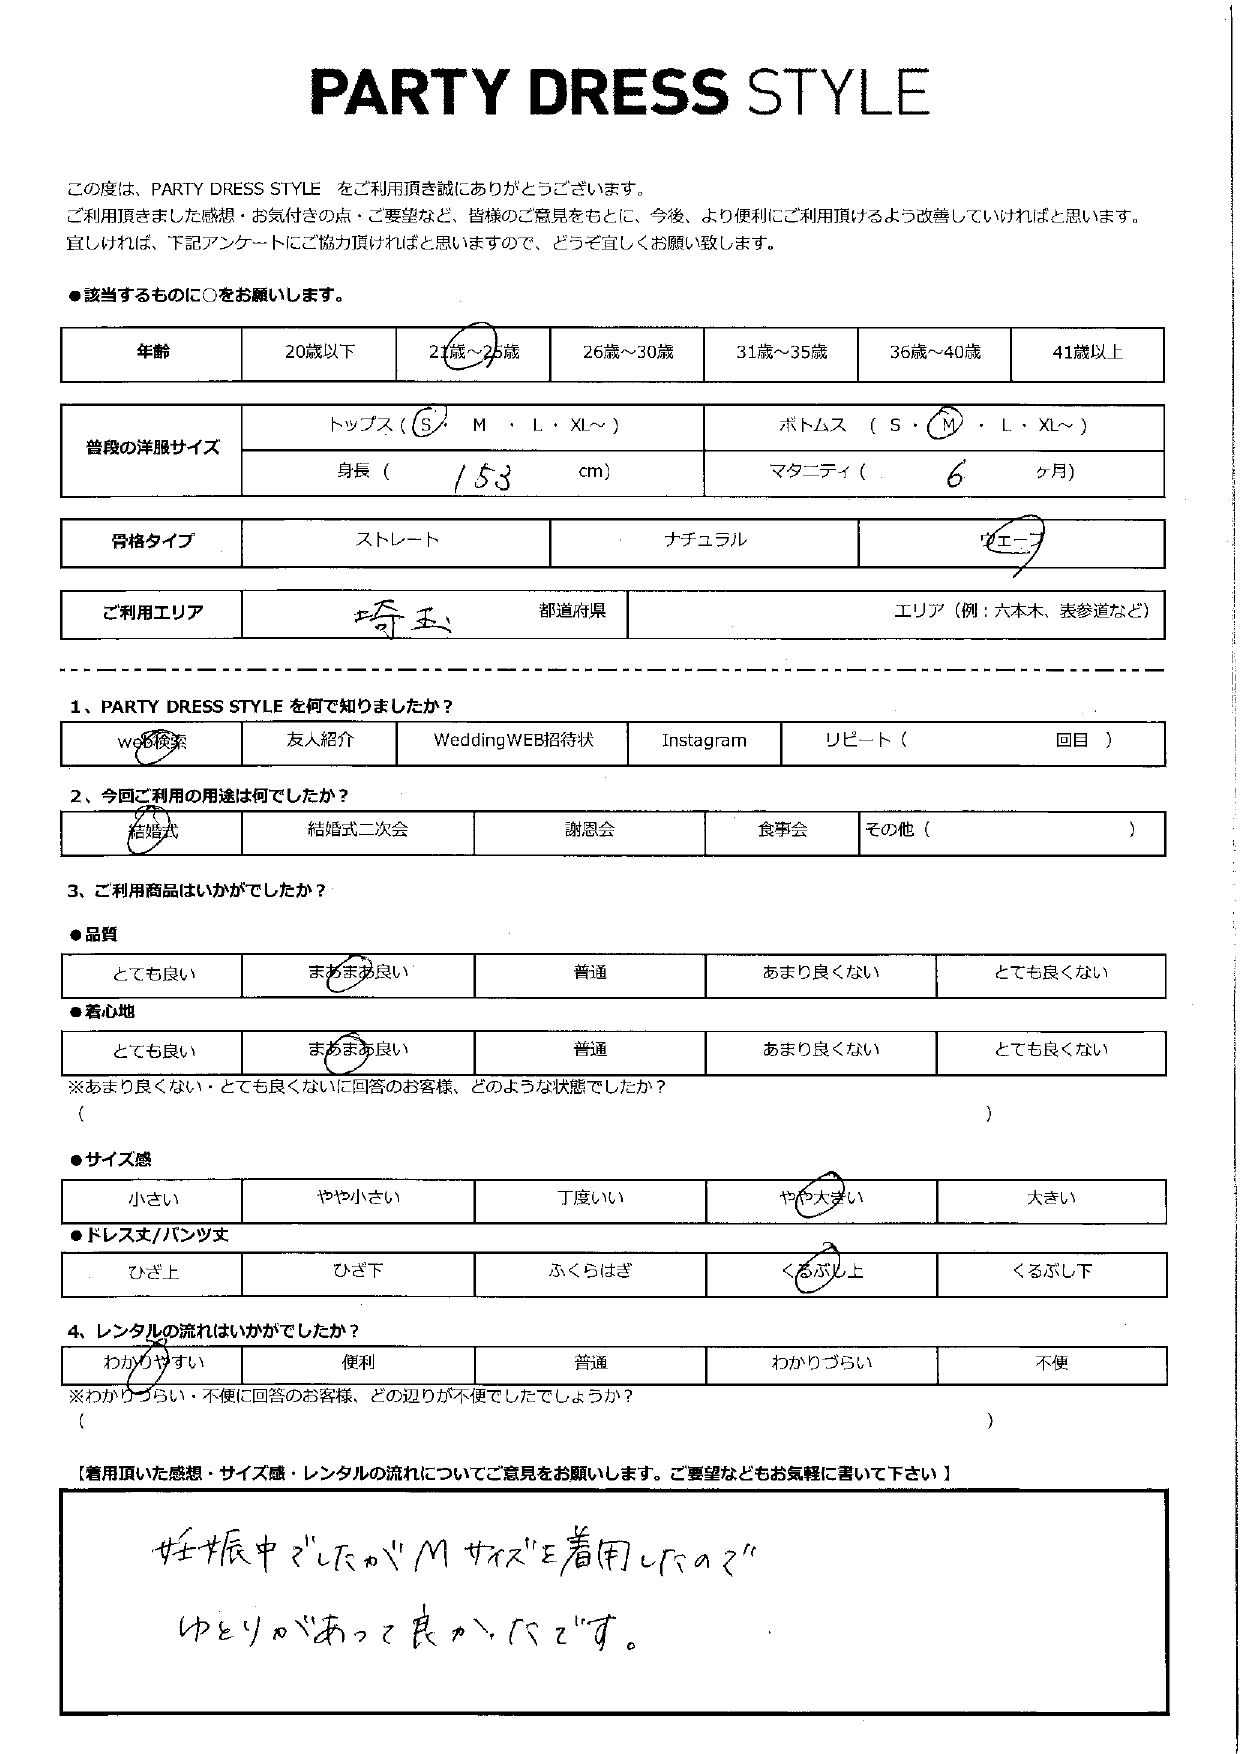 PARTY DRESS STYLE
この度は、PARTY DRESS STYLE　をご利用頂き誠にありがとうございます。
ご利用頂きました感想・お気付きの点・ご要望など、皆様のご意見をもとに、今後、より便利にご利用頂けるよう改善していければと思います。
宜しければ、下記アンケートにご協力頂ければと思いますので、どうぞ宜しくお願い致します。
●該当するものに○をお願いします。
年齢 20歳以下 21歳～25歳 26歳～30歳 31歳～35歳 36歳～40歳 41歳以上
普段の洋服サイズ トップス ( S ・ M ・ L ・ XL～ ) ボトムス ( S ・ M ・ L ・ XL～ )
身長 ( 153 cm) マタニティ ( 6 ヶ月)
骨格タイプ ストレート ナチュラル ウェーブ
ご利用エリア 埼玉 都道府県 エリア（例：六本木、表参道など）
1、PARTY DRESS STYLE を何で知りましたか？
web検索 友人紹介 WeddingWEB招待状 Instagram リピート ( 回目 )
2、今回ご利用の用途は何でしたか？
結婚式 結婚式二次会 謝恩会 食事会 その他 ( )
3、ご利用商品はいかがでしたか？
●品質
とても良い まあまあ良い 普通 あまり良くない とても良くない
●着心地
とても良い まあまあ良い 普通 あまり良くない とても良くない
※あまり良くない・とても良くないに回答のお客様、どのような状態でしたか？
( )
●サイズ感
小さい やや小さい 丁度いい やや大きい 大きい
●ドレス丈/パンツ丈
ひざ上 ひざ下 ふくらはぎ くるぶし上 くるぶし下
4、レンタルの流れはいかがでしたか？
わかりやすい 便利 普通 わかりづらい 不便
※わかりづらい・不便に回答のお客様、どの辺りが不便でしたでしょうか？
( )
【着用頂いた感想・サイズ感・レンタルの流れについてご意見をお願いします。ご要望などもお気軽に書いて下さい 】
妊娠中でしたがMサイズを着用したので
ゆとりがあって良かったです。